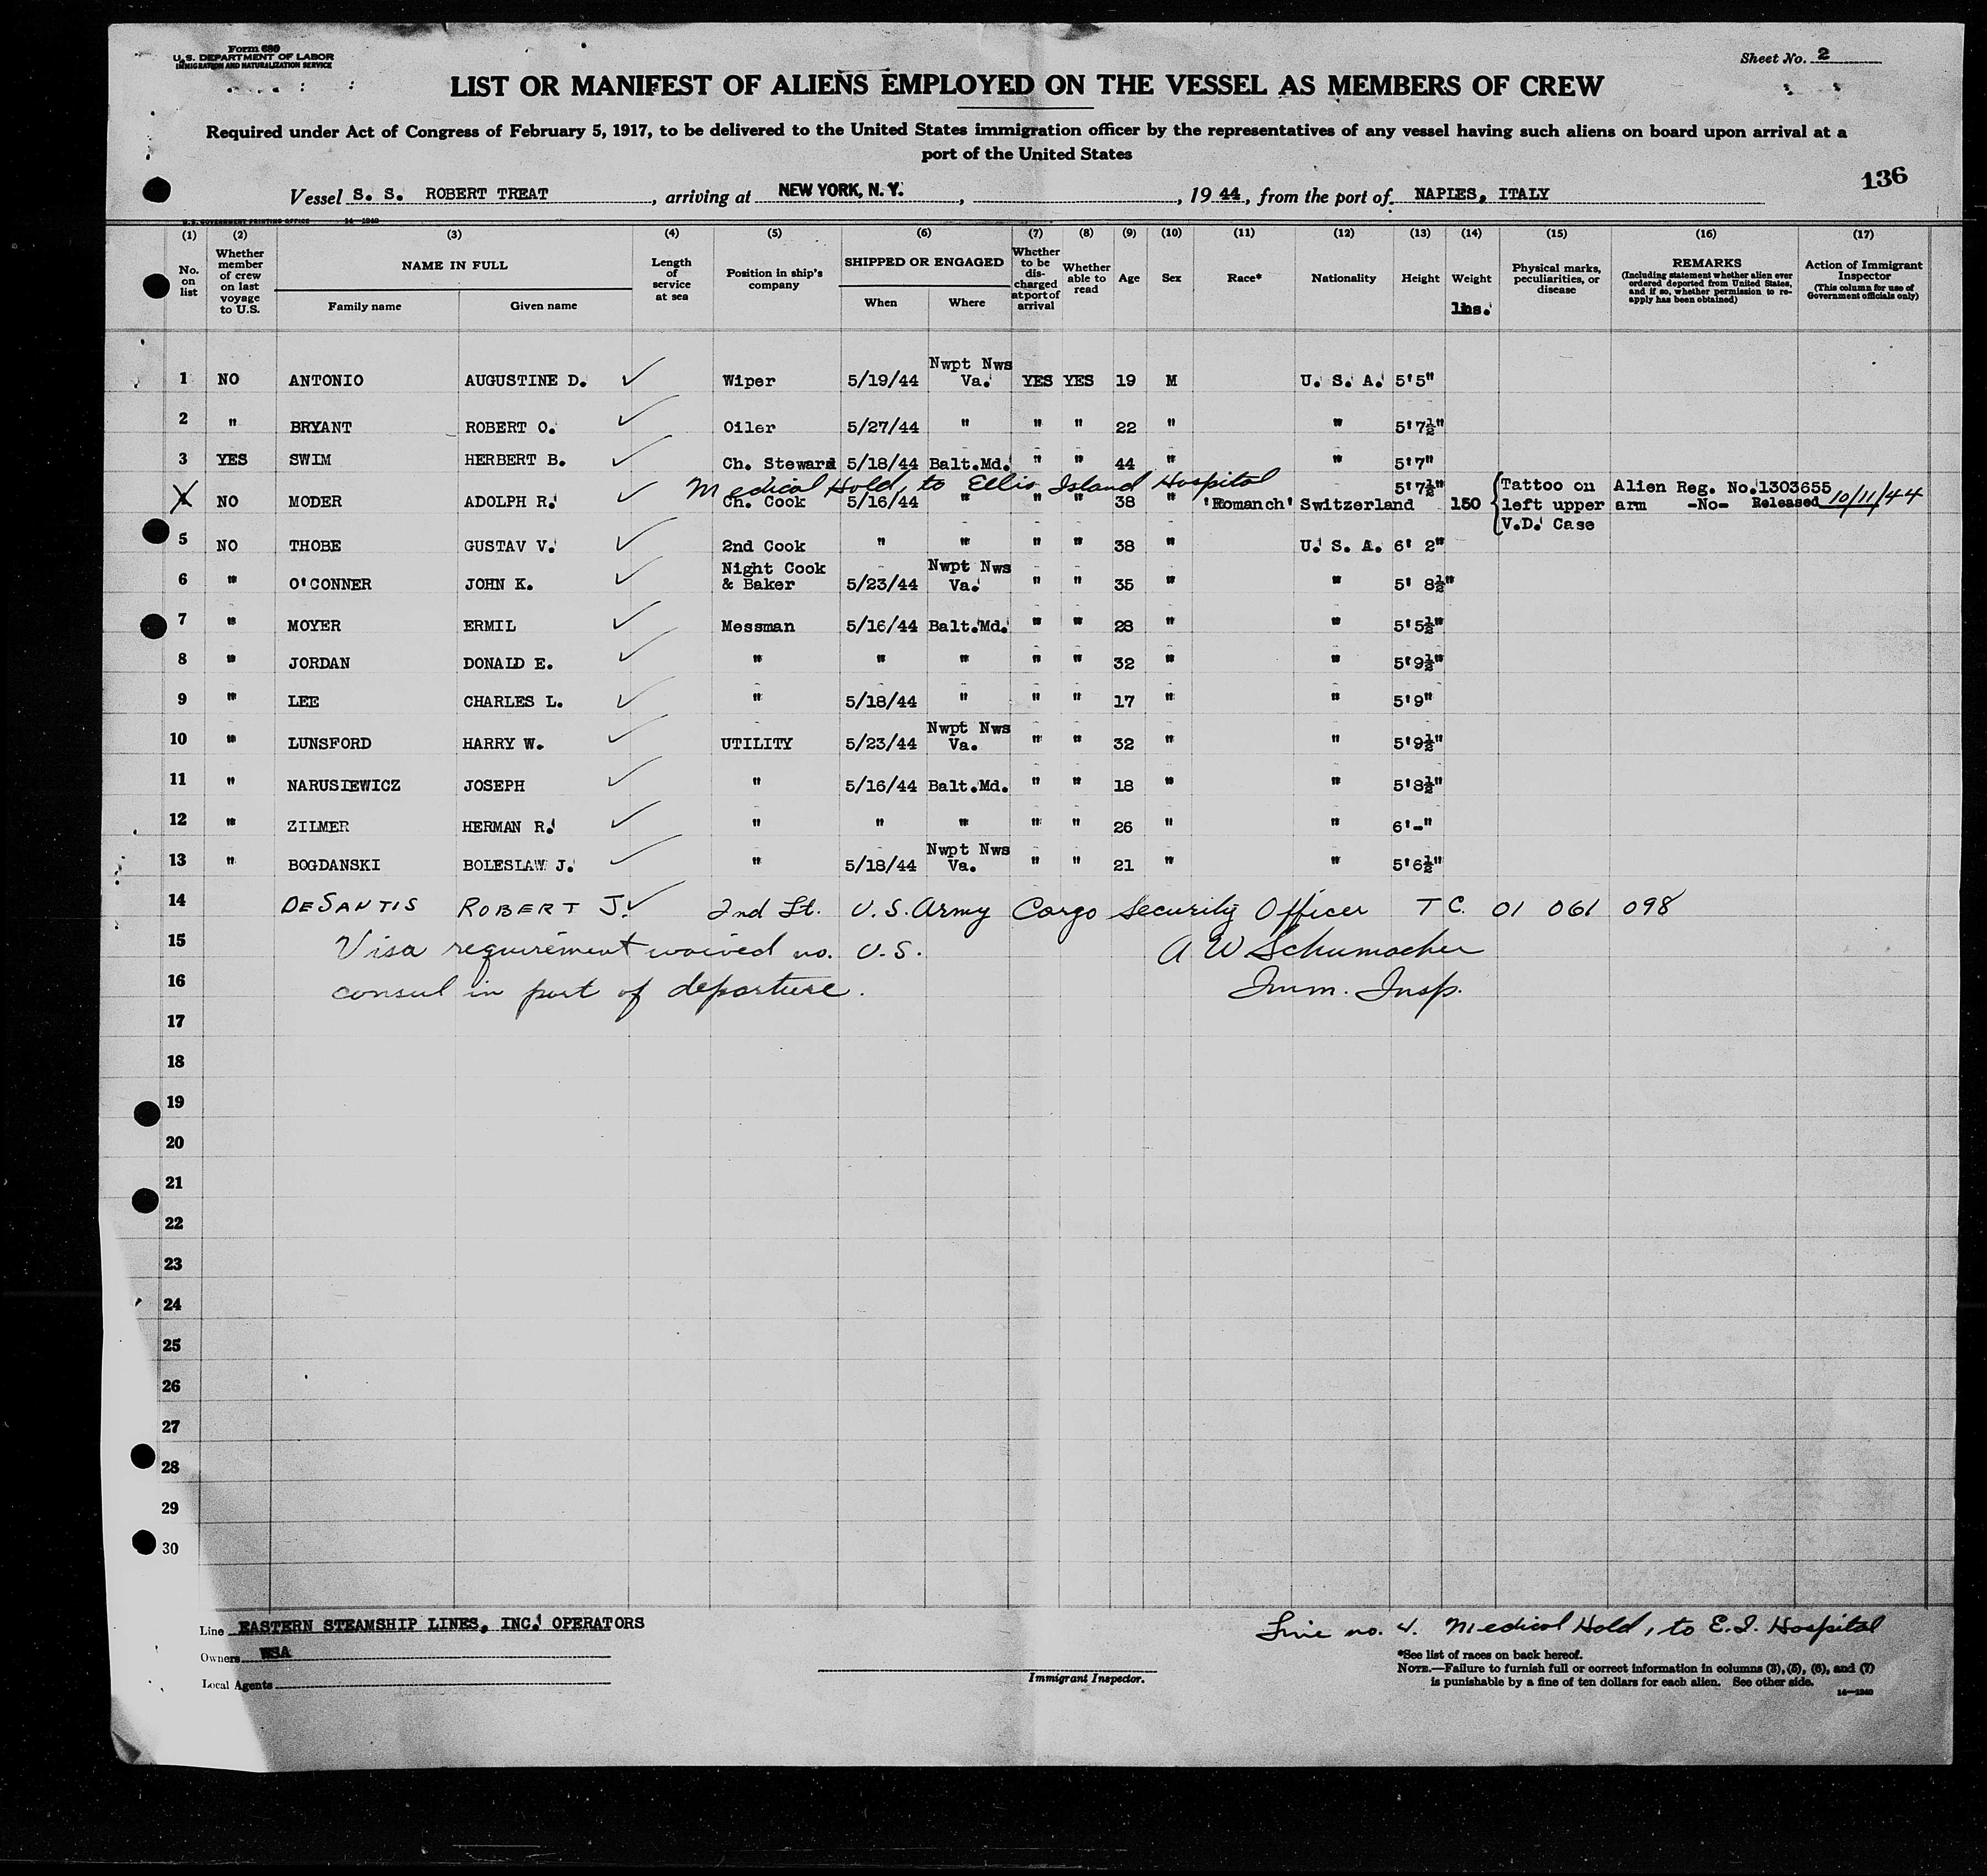 Form 680
U.S. DEPARTMENT OF LABOR
IMMIGRATION AND NATURALIZATION SERVICE
Sheet No. 2
LIST OR MANIFEST OF ALIENS EMPLOYED ON THE VESSEL AS MEMBERS OF CREW
Required under Act of Congress of February 5, 1917, to be delivered to the United States immigration officer by the representatives of any vessel having such aliens on board upon arrival at a
port of the United States
136
Vessel S. S. ROBERT TREAT, arriving at NEW YORK, N. Y., 1944, from the port of NAPLES, ITALY
U. S. GOVERNMENT PRINTING OFFICE 14—1240
(1) (2) (3) (4) (5) (6) (7) (8) (9) (10) (11) (12) (13) (14) (15) (16) (17)
No. on list
Whether member of crew on last voyage to U.S.
NAME IN FULL
Family name
Given name
Length of service at sea
Position in ship's company
SHIPPED OR ENGAGED
When
Where
Whether to be discharged at port of arrival
Whether able to read
Age
Sex
Race*
Nationality
Height
Weight
lbs.
Physical marks, peculiarities, or disease
REMARKS
(Including statement whether alien ever ordered deported from United States, and if so, whether permission to re-apply has been obtained)
Action of Immigrant Inspector
(This column for use of Government officials only)
1 NO ANTONIO AUGUSTINE D. ✓ Wiper 5/19/44 Nwpt Nws Va. YES YES 19 M U. S. A. 5'5"
2 " BRYANT ROBERT O. ✓ Oiler 5/27/44 " " " 22 " " 5'7½"
3 YES SWIM HERBERT B. ✓ Ch. Steward 5/18/44 Balt.Md. " " 44 " " 5'7"
Medical Hold, to Ellis Island Hospital
4 NO MODER ADOLPH R. ✓ Ch. Cook 5/16/44 " " " 38 " 'Romanch' Switzerland 5'7½" 150 Tattoo on left upper arm V.D. Case Alien Reg. No.1303655 -No- Released 10/11/44
5 NO THOBE GUSTAV V. ✓ 2nd Cook " " " " 38 " U. S. A. 6' 2"
6 " O'CONNER JOHN K. ✓ Night Cook & Baker 5/23/44 Nwpt Nws Va. " " 35 " " 5' 8½"
7 " MOYER ERMIL ✓ Messman 5/16/44 Balt.Md. " " 28 " " 5'5½"
8 " JORDAN DONALD E. ✓ " " " " " 32 " " 5'9½"
9 " LEE CHARLES L. ✓ " 5/18/44 " " " 17 " " 5'9"
10 " LUNSFORD HARRY W. ✓ UTILITY 5/23/44 Nwpt Nws Va. " " 32 " " 5'9½"
11 " NARUSIEWICZ JOSEPH ✓ " 5/16/44 Balt.Md. " " 18 " " 5'8½"
12 " ZILMER HERMAN R. ✓ " " " " " 26 " " 6'-"
13 " BOGDANSKI BOLESLAW J. ✓ " 5/18/44 Nwpt Nws Va. " " 21 " " 5'6½"
14 DESANTIS ROBERT J. ✓ 2nd Lt. U.S. Army Cargo Security Officer T C. 01 061 098
15 Visa requirement waived no. U.S. A W Schumacher
16 consul in port of departure. Imm. Insp.
17
18
19
20
21
22
23
24
25
26
27
28
29
30
Line EASTERN STEAMSHIP LINES, INC. OPERATORS
Owners WSA
Local Agents
Immigrant Inspector.
Line no. 4. Medical Hold, to E.I. Hospital
*See list of races on back hereof.
NOTE.—Failure to furnish full or correct information in columns (3), (5), (6), and (7)
is punishable by a fine of ten dollars for each alien. See other side.
14—1240